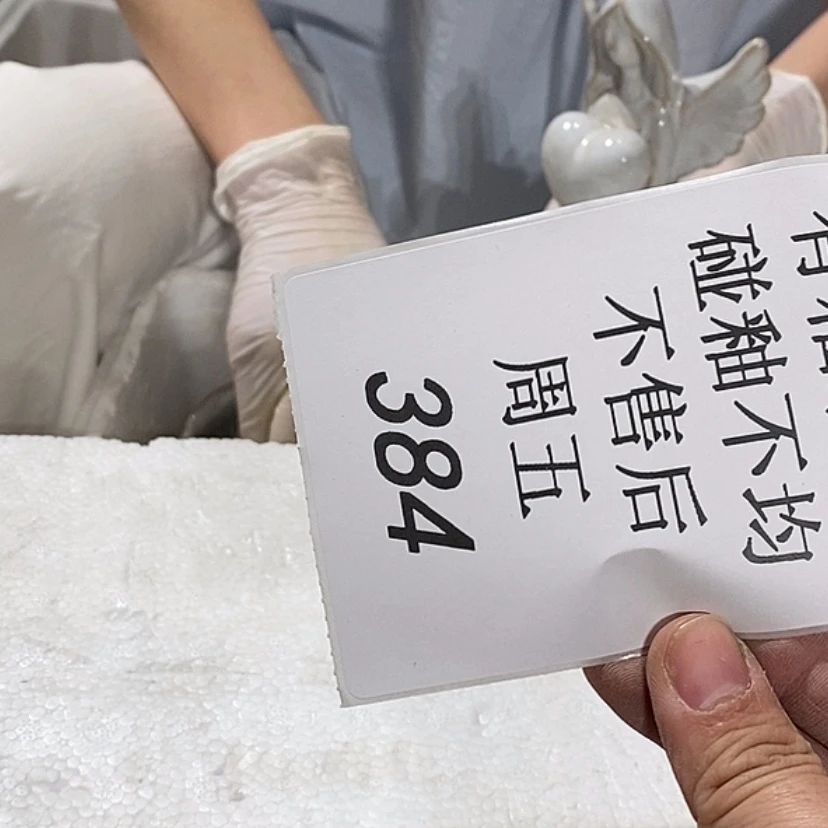 碰釉不均
不售后
周五
384